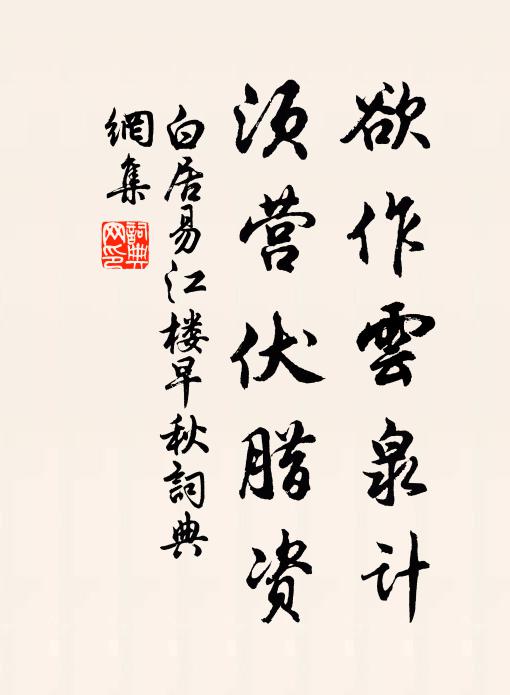 欲作雲泉计
须营伏腊资
白居易江楼早秋詞典
網集
詞典网印